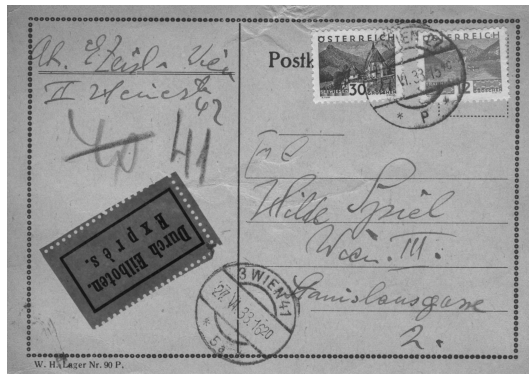 Wien
II
42
40 41
Durch Eilboten.
Exprès.
Postk
ÖSTERREICH
30
ÖSTERREICH
12
WIEN 27
VI.33.
* P *
Hilde Spiel
Wien. III.
Stanislausgasse
2.
3 WIEN 41
27.VI.33.1620
* 5a *
W. H. Lager Nr. 90 P.